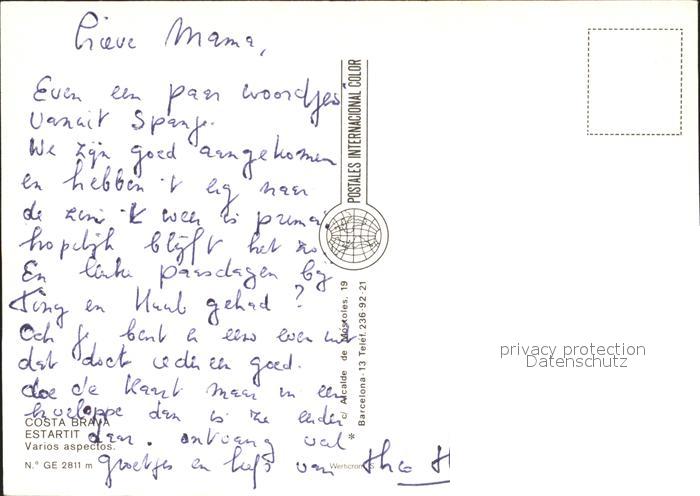 Lieve Mama,
Even een paar woordjes
vanuit Spanje.
We zijn goed aangekomen
en hebben 't erg naar
de zin 't weer is prima
hopelijk blijft het zo.
En leuke paasdagen bij
Tiny en Huub gehad?
Och je bent er eens even uit
dat doet iedereen goed.
doe de kaart maar in een
enveloppe dan is ze eerder
daar. ontvang veel
groetjes en liefs van Theo H
POSTALES INTERNACIONAL COLOR
c/ Alcalde de Móstoles, 19
Barcelona-13 Telef. 236-92-21
COSTA BRAVA
ESTARTIT
Varios aspectos.
N.° GE 2811 m
privacy protection
Datenschutz